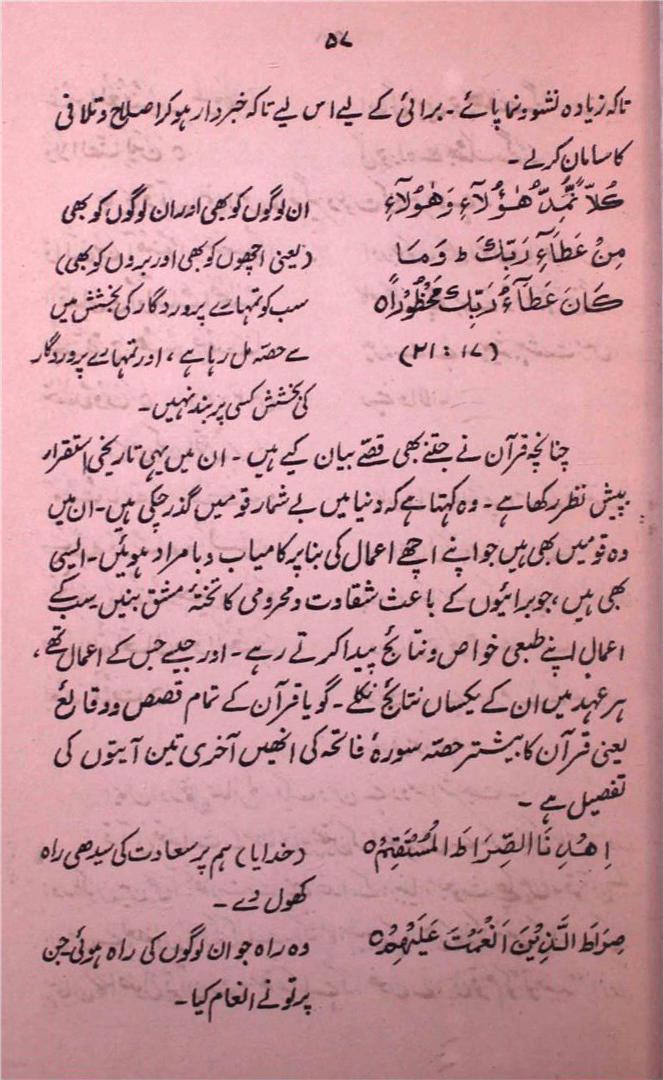 ۵۷
تاکہ زیادہ نشوونما پائے۔ برائی کے لیے اس لیے تاکہ خبردار ہوکر اصلاح و تلافی
کا سامان کرلے۔
كُلًّا نُّمِدُّ هٰٓؤُلَآءِ وَهٰٓؤُلَآءِ ان لوگوں کو بھی اور ان لوگوں کو بھی
مِنْ عَطَآءِ رَبِّكَ ط وَمَا (یعنی اچھوں کو بھی اور بروں کو بھی)
كَانَ عَطَآءُ رَبِّكَ مَحْظُوْرًا ○ سب کو تمہارے پروردگار کی بخشش میں
(۲۱:۱۷) سے حصہ مل رہا ہے، اور تمہارے پروردگار
کی بخشش کسی پر بند نہیں۔
چنانچہ قرآن نے جتنے بھی قصّے بیان کیے ہیں۔ ان میں یہی تاریخی استقرار
پیش نظر رکھا ہے۔ وہ کہتا ہے کہ دنیا میں بے شمار قومیں گذر چکی ہیں۔ ان میں
وہ قومیں بھی ہیں جو اپنے اچھے اعمال کی بنا پر کامیاب و بامراد ہوئیں۔ ایسی
بھی ہیں، جو برائیوں کے باعث شقاوت و محرومی کا تختۂ مشق بنیں سب کے
اعمال اپنے طبعی خواص و نتائج پیدا کرتے رہے۔ اور جیسے جس کے اعمال تھے،
ہر عہد میں ان کے یکساں نتائج نکلے۔ گویا قرآن کے تمام قصص و وقائع
یعنی قرآن کا بیشتر حصہ سورۂ فاتحہ کی انھیں آخری تین آیتوں کی
تفصیل ہے۔
اِهْدِنَا الصِّرَاطَ الْمُسْتَقِيْمَ ○ (خدایا) ہم پر سعادت کی سیدھی راہ
کھول دے۔
صِرَاطَ الَّذِيْنَ اَنْعَمْتَ عَلَيْهِمْ ○ وہ راہ جو ان لوگوں کی راہ ہوئی جن
پر تو نے انعام کیا۔